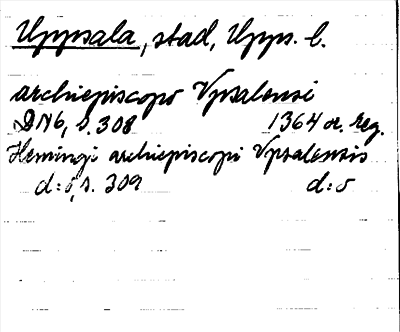 Uppsala, stad, Upps. l.
archiepiscopo Vpsalensi
DN6, s. 308 1364 or. reg.
Hemingi archiepiscopi Vpsalensis
d:o, s. 309 d:o